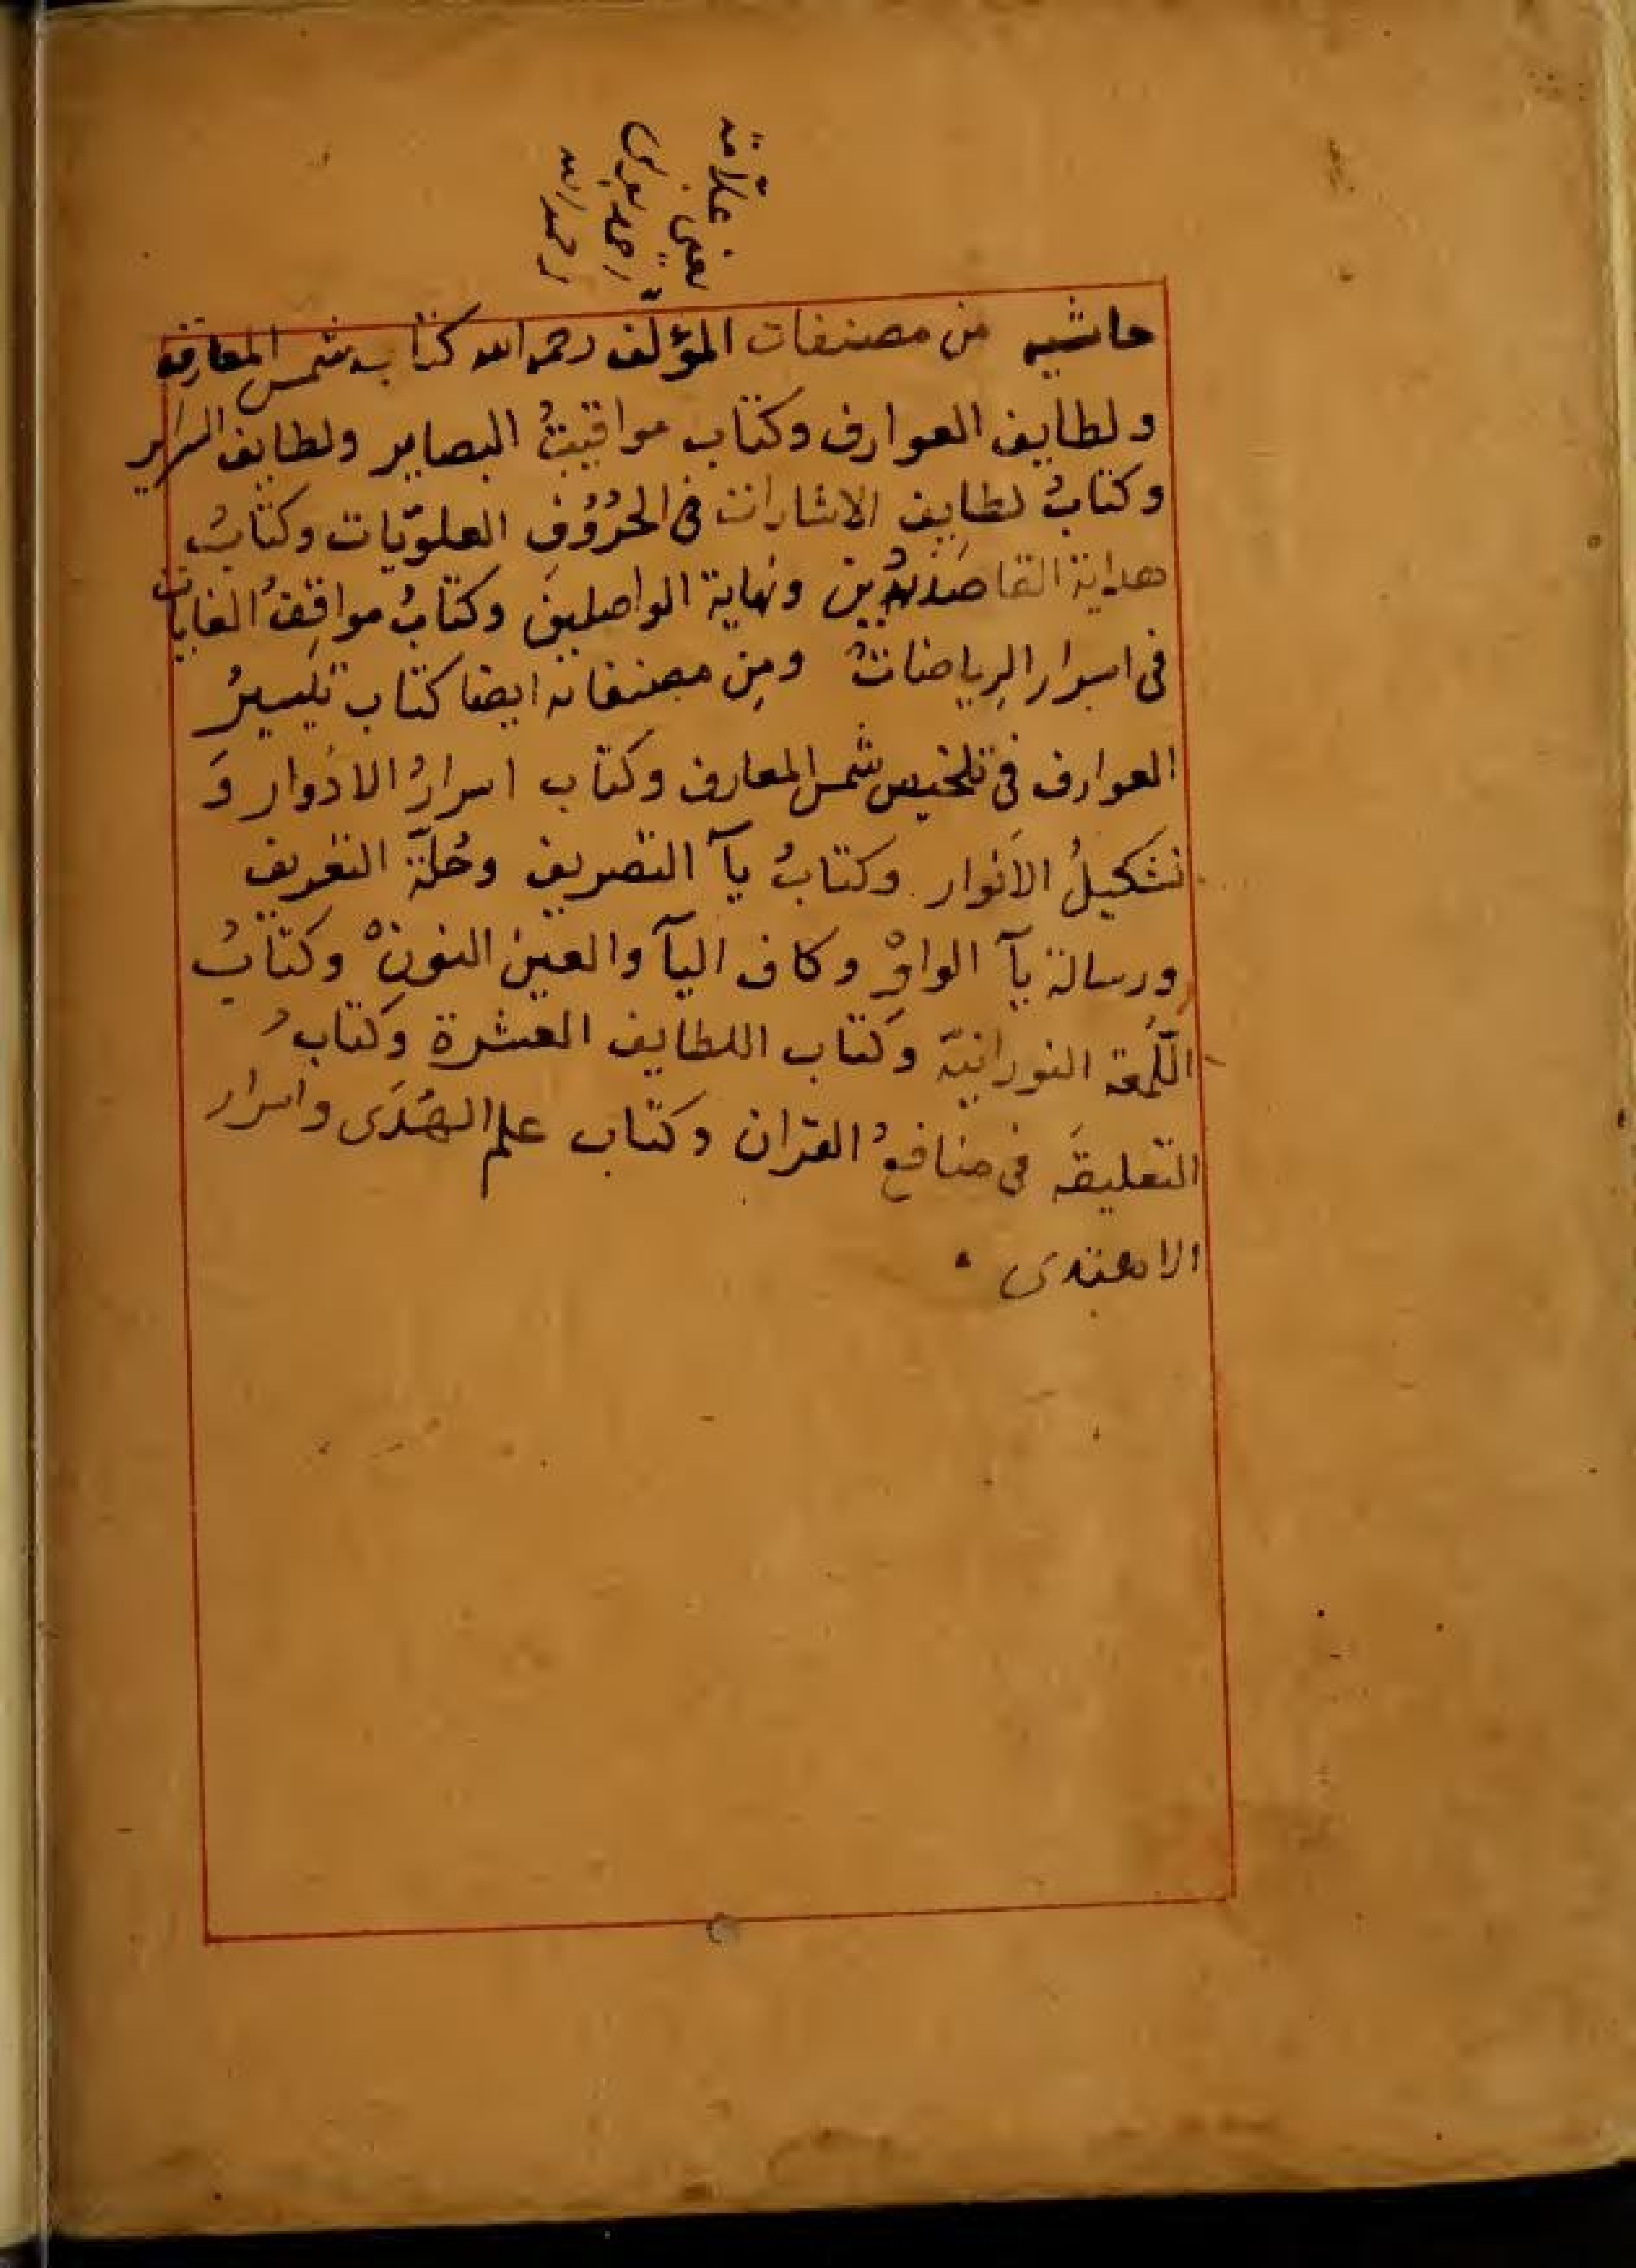 علّامة
يعنى
احمد بونى
رحمه الله
حاشيه من مصنفات المؤلّف رحمه الله كتاب شمس المعارف
ولطايف العوارف وكتاب مواقيتُ البصاير ولطايف السراير
وكتابُ لطايف الاشارات فى الحُرُوُفِ العلويّات وكتابُ
هداية القاصدين ونهاية الواصلين وكتابُ مواقفُ الغايات
فى اسرار الرياضات ومن مصنفاته ايضا كتاب تيسيرُ
العوارف فى تلخيص شمس المعارف وكتاب اسرارُ الادوار وَ
تشكيلُ الانوار وكتابُ يآ التصريف وحُلّة التعريف
ورسالة يآ الواوْ وكاف اليآ والعين النونْ وكتابُ
اللّمعة النورانيّة وكتاب اللطايف العشرة وكتابُ
التعليقَه فى منافعُ القران وكتاب علم الهُدَى واسرار
الاهتدى